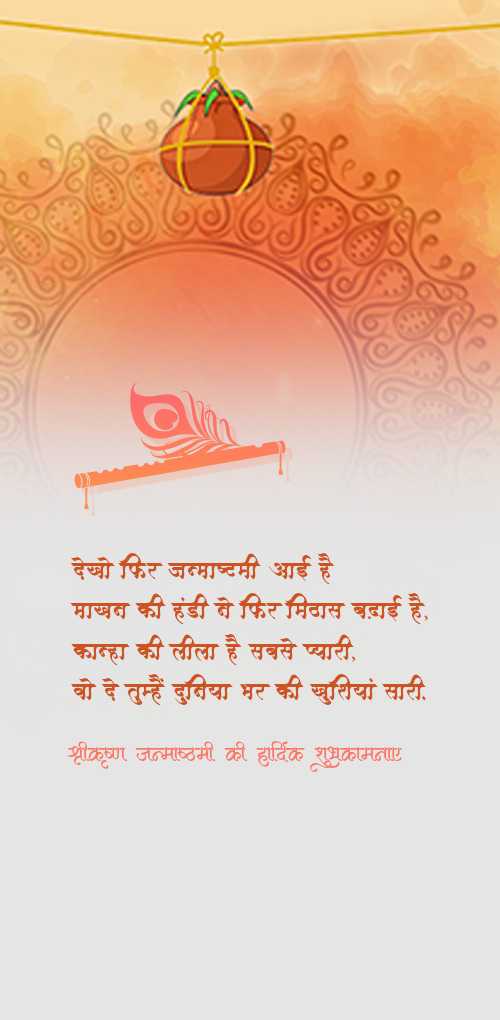 देखो फिर जन्माष्टमी आई है
माखन की हंडी ने फिर मिठास बढ़ाई है,
कान्हा की लीला है सबसे प्यारी,
वो दे तुम्हैं दुनिया भर की खुशियां सारी.
श्रीकृष्ण जन्माष्ठमी की हार्दिक शुभकामनाए